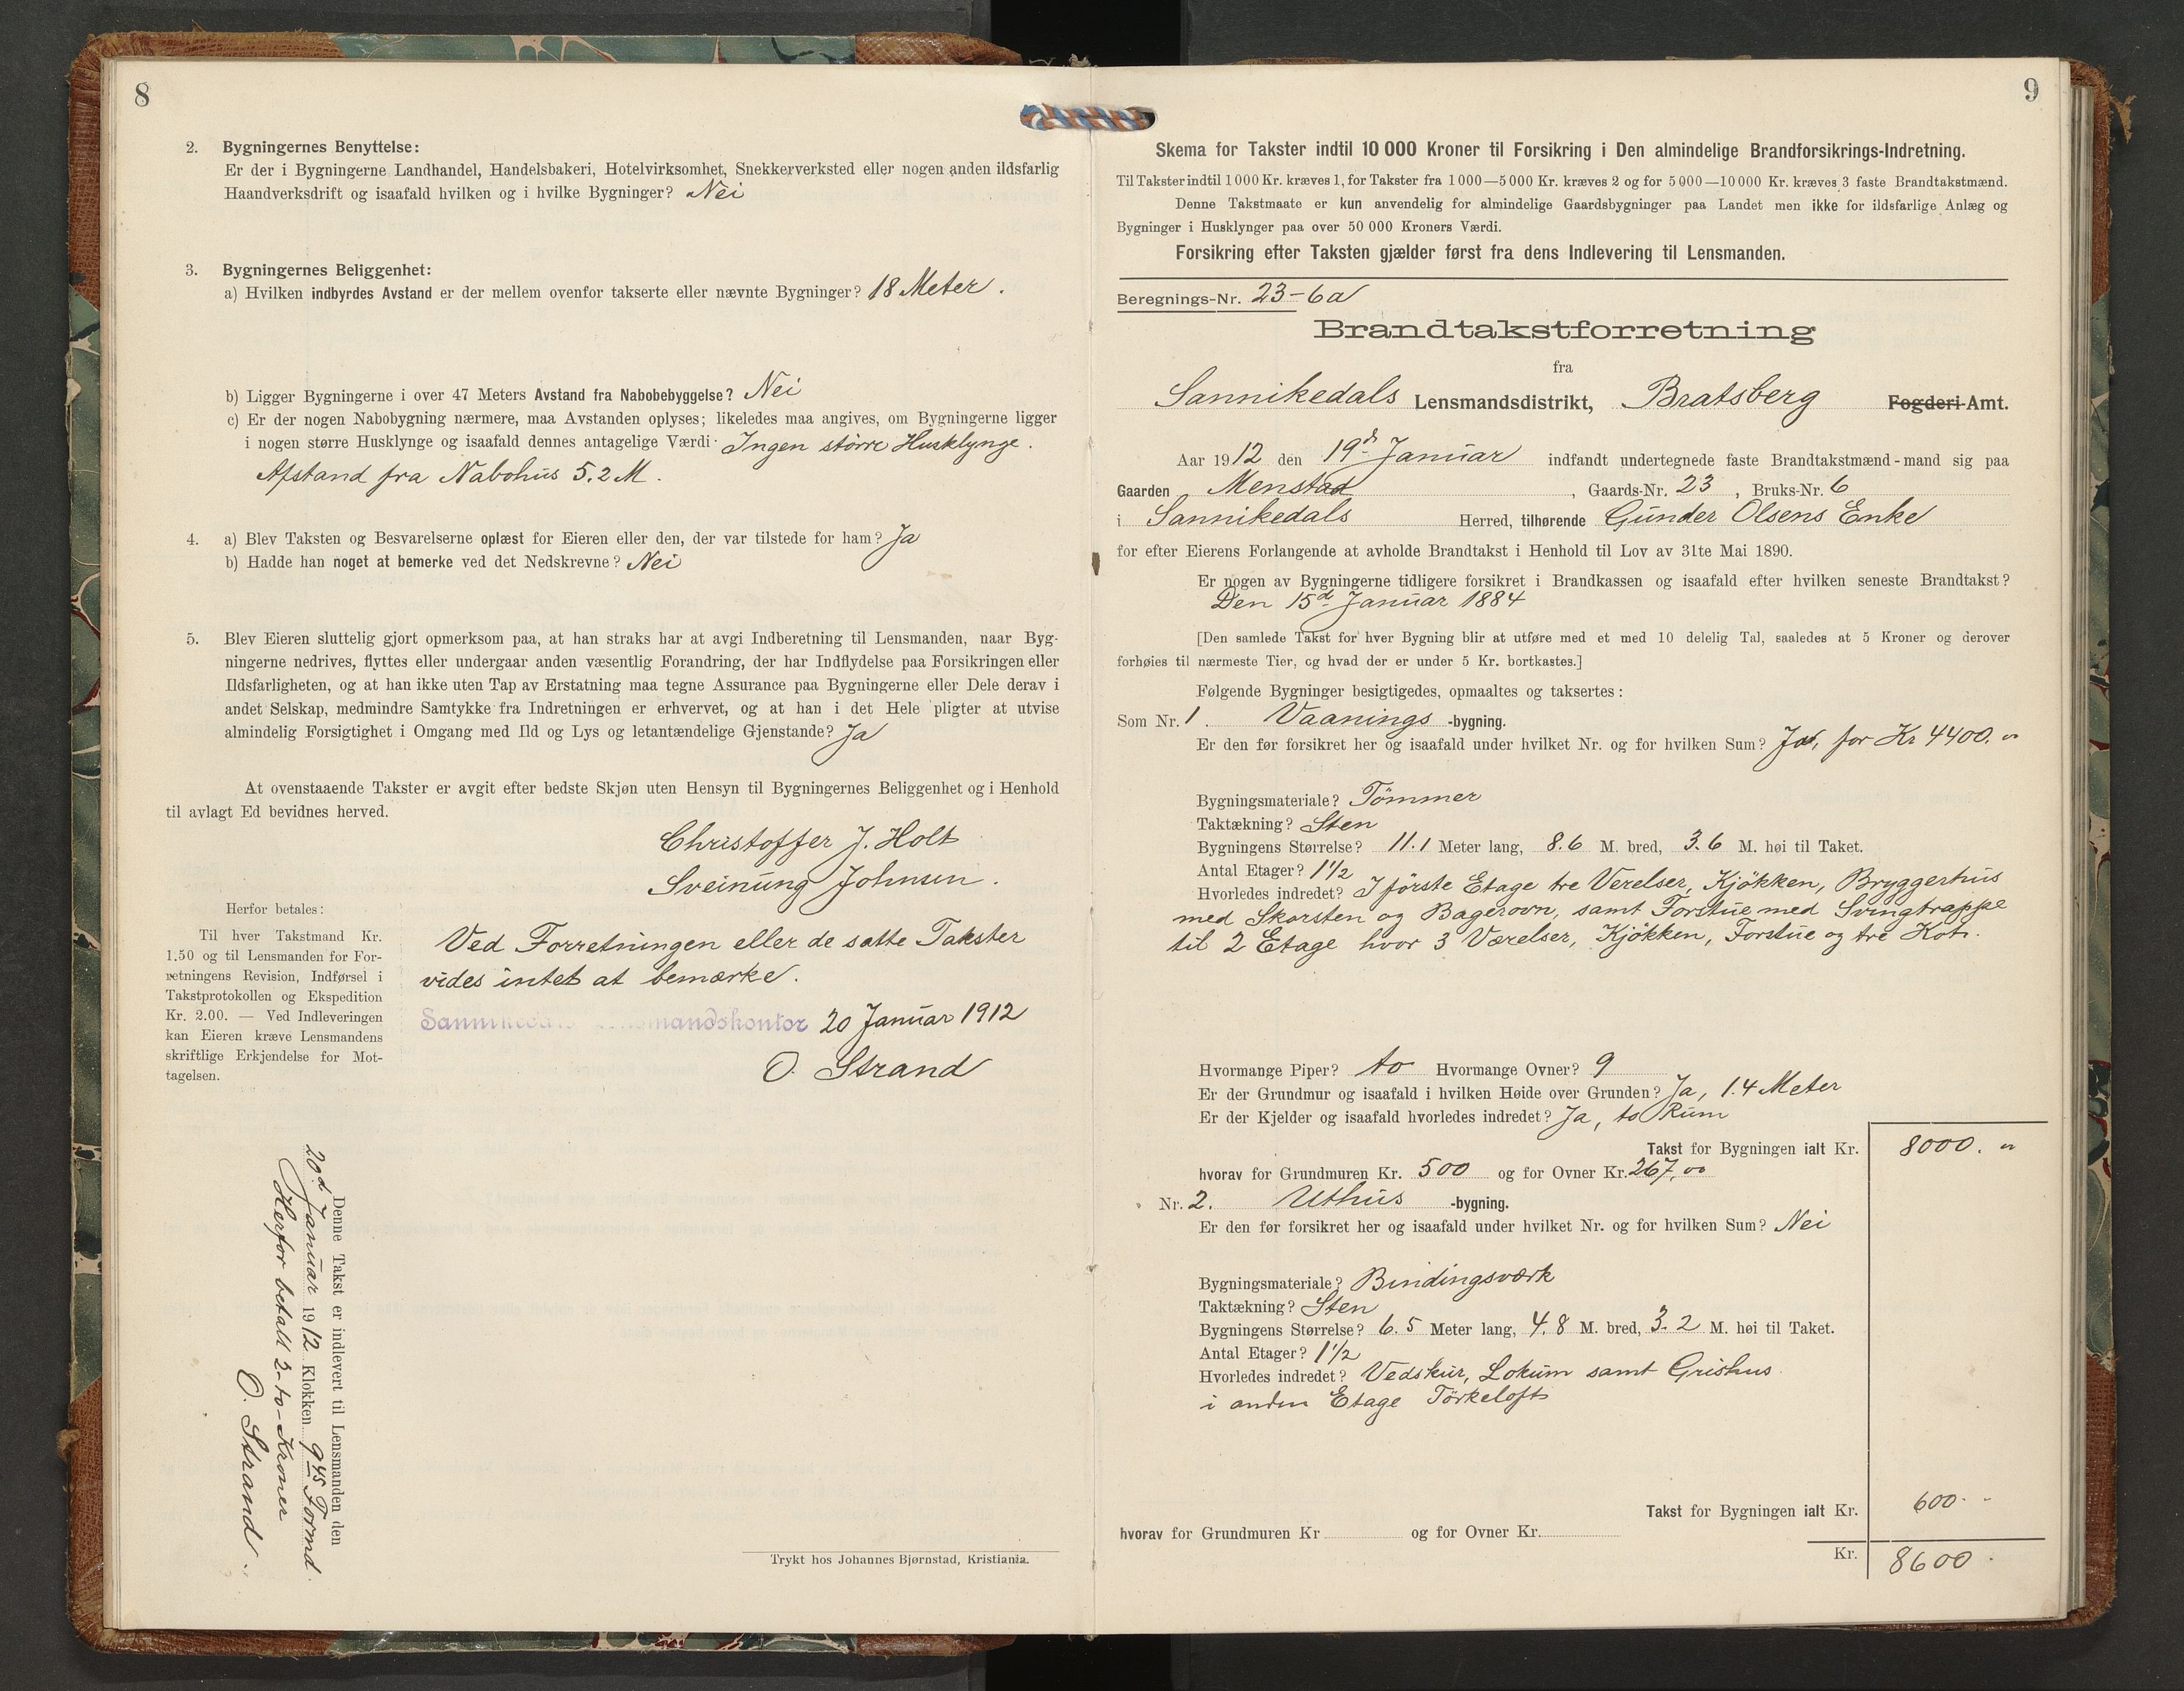 8
2. Bygningernes Benyttelse:
Er der i Bygningerne Landhandel, Handelsbakeri, Hotelvirksomhet, Snekkerverksted eller nogen anden ildsfarlig
Haandverksdrift og isaafald hvilken og i hvilke Bygninger? Nei
3. Bygningernes Beliggenhet:
a) Hvilken indbyrdes Avstand er der mellem ovenfor takserte eller nævnte Bygninger? 18 Meter.
b) Ligger Bygningerne i over 47 Meters Avstand fra Nabobebyggelse? Nei
c) Er der nogen Nabobygning nærmere, maa Avstanden oplyses; likeledes maa angives, om Bygningerne ligger
i nogen større Husklynge og isaafald dennes antagelige Værdi. Ingen større Husklynge.
Afstand fra Nabohus 5.2 M.
4. a) Blev Taksten og Besvarelserne oplæst for Eieren eller den, der var tilstede for ham? Ja
b) Hadde han noget at bemerke ved det Nedskrevne? Nei
5. Blev Eieren sluttelig gjort opmerksom paa, at han straks har at avgi Indberetning til Lensmanden, naar Byg-
ningerne nedrives, flyttes eller undergaar anden væsentlig Forandring, der har Indflydelse paa Forsikringen eller
Ildsfarligheten, og at han ikke uten Tap av Erstatning maa tegne Assurance paa Bygningerne eller Dele derav i
andet Selskap, medmindre Samtykke fra Indretningen er erhvervet, og at han i det Hele pligter at utvise
almindelig Forsigtighet i Omgang med Ild og Lys og letantændelige Gjenstande? Ja
At ovenstaaende Takster er avgit efter bedste Skjøn uten Hensyn til Bygningernes Beliggenhet og i Henhold
til avlagt Ed bevidnes herved.
Christoffer J. Holt
Sveinung Johnsen.
Herfor betales:
Til hver Takstmand Kr.
1.50 og til Lensmanden for For-
retningens Revision, Indførsel i
Takstprotokollen og Ekspedition
Kr. 2.00. — Ved Indleveringen
kan Eieren kræve Lensmandens
skriftlige Erkjendelse for Mot-
tagelsen.
Ved Forretningen eller de satte Takster
vides intet at bemærke.
Sannikedals Lensmandskontor 20 Januar 1912
O. Strand
Denne Takst er indlevert til Lensmanden den
20d Januar 1912 Klokken 9 45 Formd.
Herfor betalt 2 - to - Kroner
O. Strand
Trykt hos Johannes Bjørnstad, Kristiania.
9
Skema for Takster indtil 10 000 Kroner til Forsikring i Den almindelige Brandforsikrings-Indretning.
Til Takster indtil 1 000 Kr. kræves 1, for Takster fra 1 000—5 000 Kr. kræves 2 og for 5 000—10 000 Kr. kræves 3 faste Brandtakstmænd.
Denne Takstmaate er kun anvendelig for almindelige Gaardsbygninger paa Landet men ikke for ildsfarlige Anlæg og
Bygninger i Husklynger paa over 50 000 Kroners Værdi.
Forsikring efter Taksten gjælder først fra dens Indlevering til Lensmanden.
Beregnings-Nr. 23-6a
Brandtakstforretning
fra
Sannikedals Lensmandsdistrikt, Bratsberg Fogderi-Amt.
Aar 1912 den 19d Januar indfandt undertegnede faste Brandtakstmænd-mand sig paa
Gaarden Menstad, Gaards-Nr. 23, Bruks-Nr. 6
i Sannikedals Herred, tilhørende Gunder Olsens Enke
for efter Eierens Forlangende at avholde Brandtakst i Henhold til Lov av 31te Mai 1890.
Er nogen av Bygningerne tidligere forsikret i Brandkassen og isaafald efter hvilken seneste Brandtakst?
Den 15d Januar 1884
[Den samlede Takst for hver Bygning blir at utføre med et med 10 delelig Tal, saaledes at 5 Kroner og derover
forhøies til nærmeste Tier, og hvad der er under 5 Kr. bortkastes.]
Følgende Bygninger besigtigedes, opmaaltes og taksertes:
Som Nr. 1. Vaanings -bygning.
Er den før forsikret her og isaafald under hvilket Nr. og for hvilken Sum? Ja, for Kr 4400. "
Bygningsmateriale? Tømmer
Taktækning? Sten
Bygningens Størrelse? 11.1 Meter lang, 8.6 M. bred, 3.6 M. høi til Taket.
Antal Etager? 1½
Hvorledes indredet? I første Etage tre Verelser, Kjøkken, Bryggerhus
med Skorsten og Bagerovn, samt Forstue med Svingtrappe
til 2 Etage hvor 3 Værelser, Kjøkken, Forstue og tre Kot.
Hvormange Piper? to Hvormange Ovner? 9
Er der Grundmur og isaafald i hvilken Høide over Grunden? Ja, 1.4 Meter
Er der Kjelder og isaafald hvorledes indredet? Ja, to Rum
Takst for Bygningen ialt Kr. 8000. "
hvorav for Grundmuren Kr. 500 og for Ovner Kr. 267,00
Nr. 2. Uthus -bygning.
Er den før forsikret her og isaafald under hvilket Nr. og for hvilken Sum? Nei
Bygningsmateriale? Bindingsværk
Taktækning? Sten
Bygningens Størrelse? 6.5 Meter lang, 4.8 M. bred, 3.2 M. høi til Taket.
Antal Etager? 1½
Hvorledes indredet? Vedskur, Lokum samt Grishus
i anden Etage Tørkeloft
Takst for Bygningen ialt Kr. 600. -
hvorav for Grundmuren Kr og for Ovner Kr.
Kr. 8600.